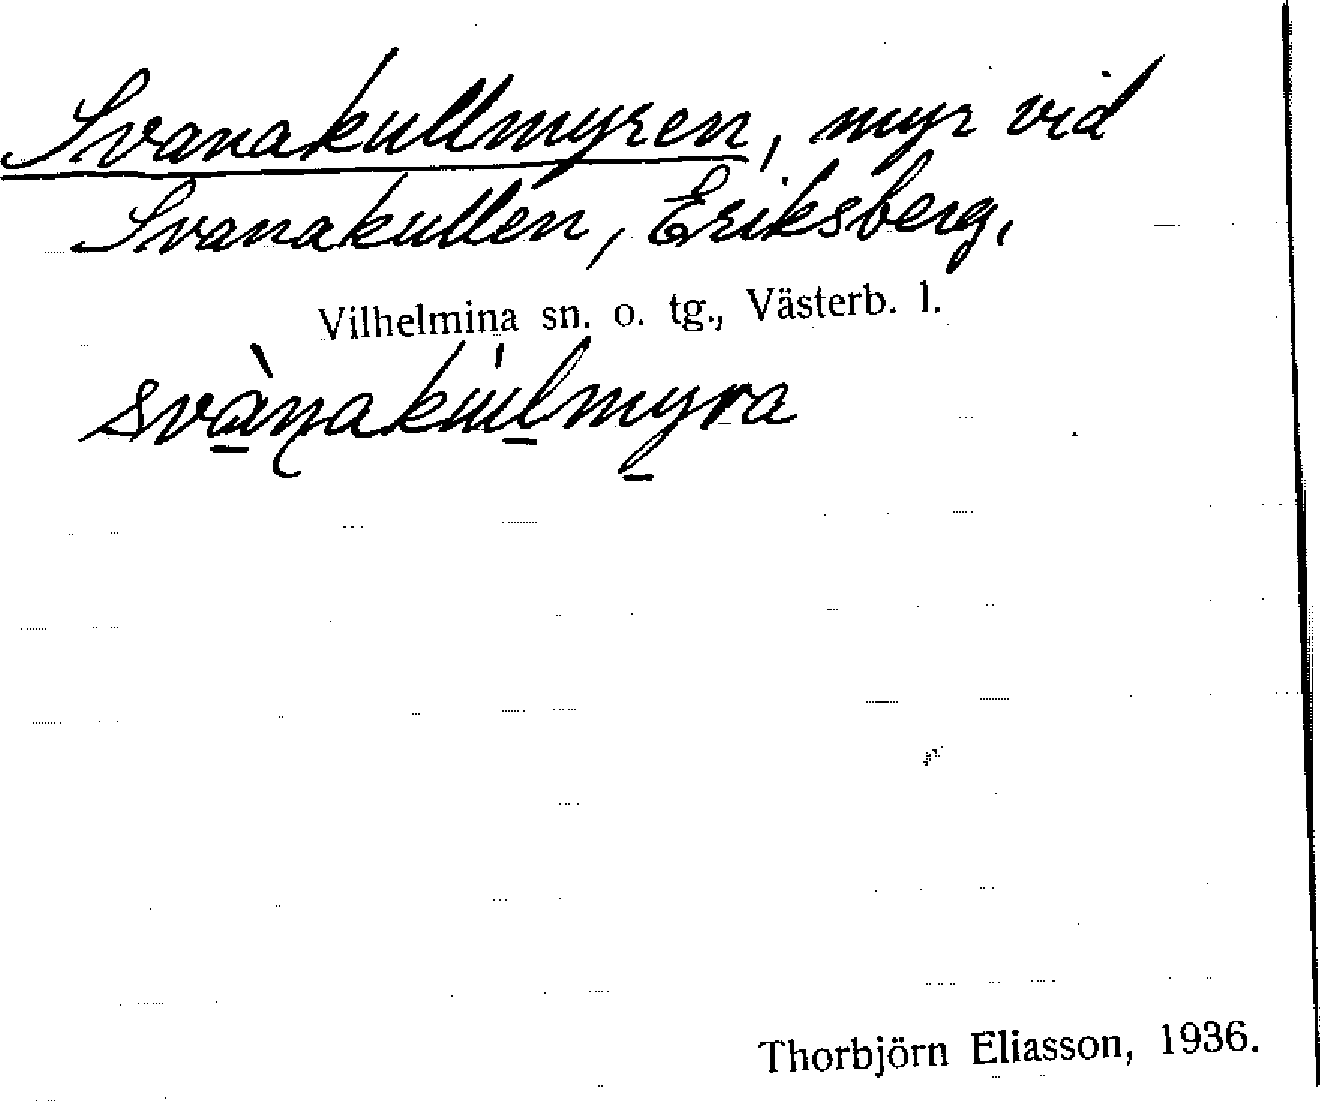 Svanakullmyren, myr vid
Svanakullen, Eriksberg,
Vilhelmina sn. o. tg., Västerb. l.
svànakúlmyra
Thorbjörn Eliasson, 1936.